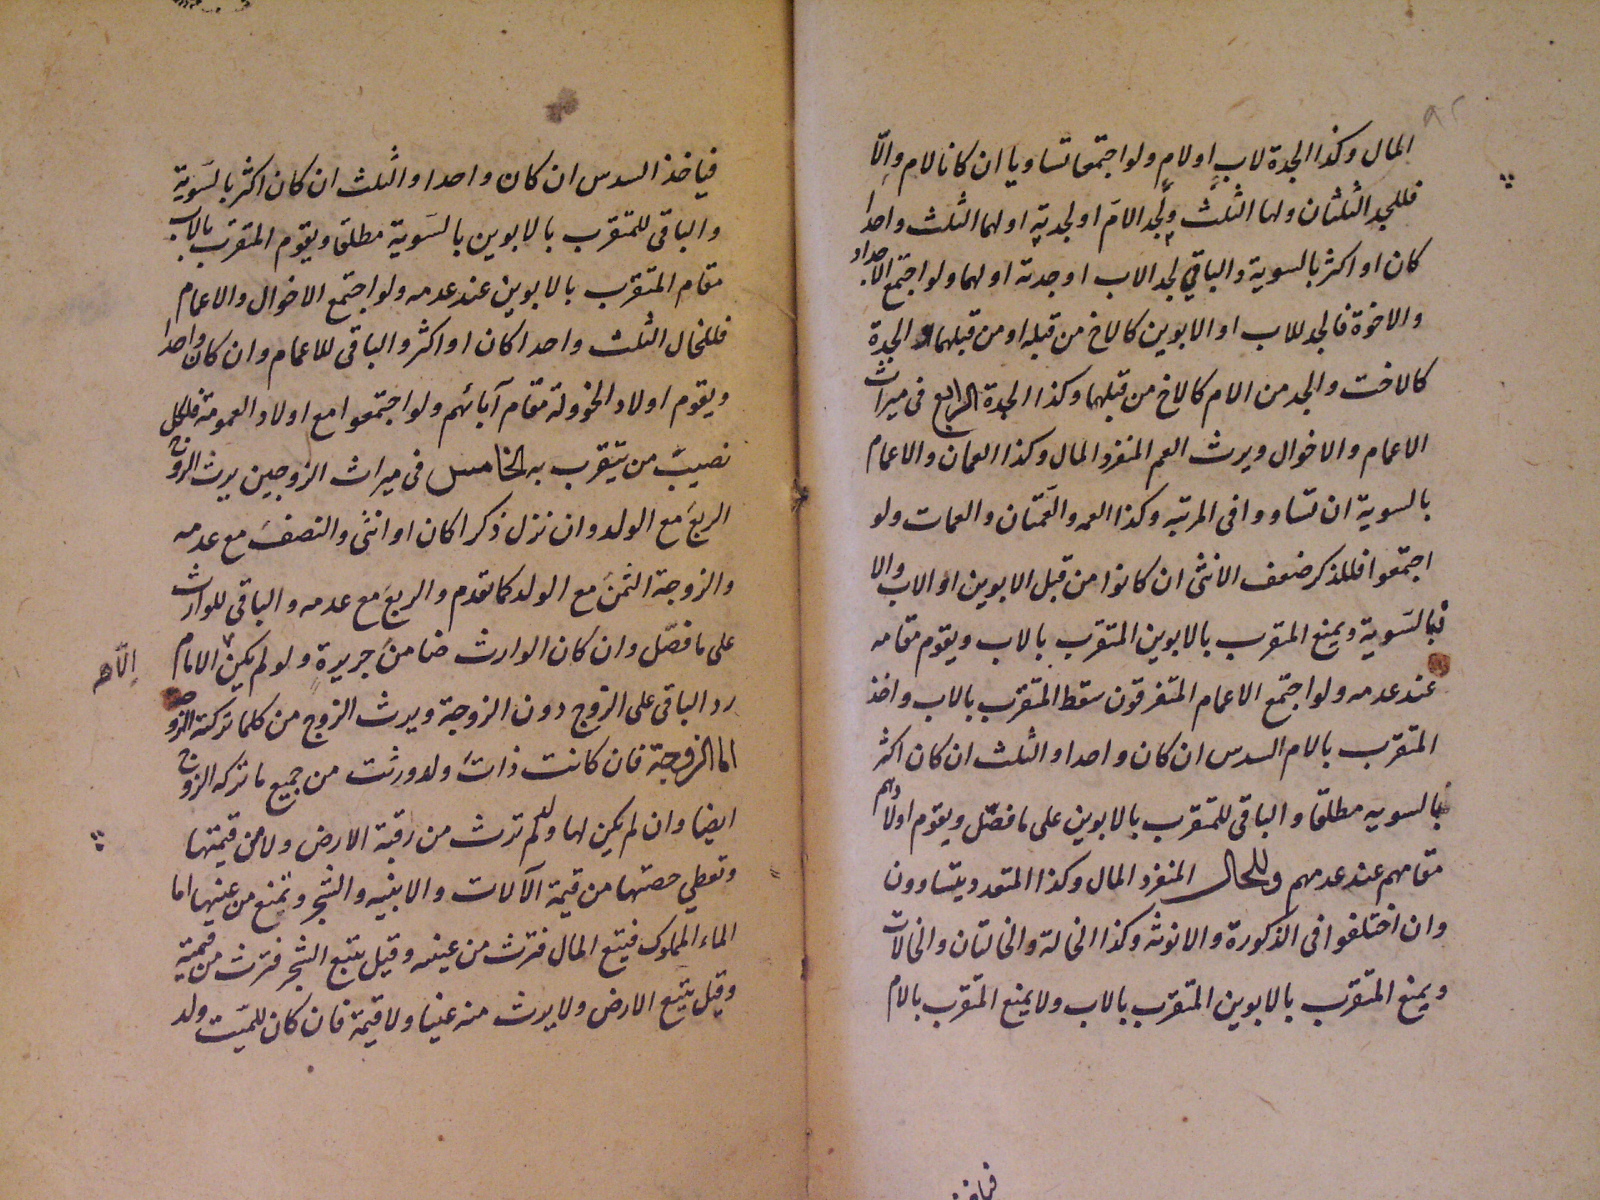 المال وكذا الجدة لاب او لام ولو اجتمعا تساويا ان كانا لام والّا
فللجد الثلثان ولها الثلث ولجد الام او لجدته او لهما الثلث واحدا
كان او اكثر بالسوية والباقي لجد الاب او جدته او لهما ولو اجتمع الاجداد
والاخوة فالجد للاب او الابوين كالاخ من قبله او من قبلهما والجدة
كالاخت والجد من الام كالاخ من قبلها وكذا الجدة الرابع فى ميراث
الاعمام والاخوال ويرث العم المنفرد المال وكذا العمان والاعمام
بالسوية ان تساووا فى المرتبه وكذا العمه والعَمّتان والعمات ولو
اجتمعوا فللذكر ضعف الانثى ان كانوا من قبل الابوين او الاب والا
فبالسَوية ويمنع المتقرب بالابوين المتقرّب بالاب ويقوم مقامه
عند عدمه ولو اجتمع الاعمام المتفرقون سقط المتقرّب بالاب واخذ
المتقرّب بالام السدس ان كان واحدا والثلث ان كان اكثر
بالسويه مطلقا والباقى للمتقرّب بالابوين على ما فصّل ويقوم اولادهم
مقامهم عند عدمهم وللخال المنفرد المال وكذا المتعدد يتساوون
وان اختلفوا فى الذكورة والانوثه وكذا الخالة والخالتان والخالات
ويمنع المتقرّب بالابوين المتقرّب بالاب ولا يمنع المتقرّب بالام
فياخذ
فياخذ السدس ان كان واحدا والثلث ان كان اكثر بالسَوية
والباقى للمتقرب بالابوين بالسَوية مطلقا ويقوم المتقرّب بالاب
مقام المتقرب بالابوين عند عدمه ولو اجتمع الاخوال والاعمام
فللخال الثلث واحدا كان او اكثر والباقى للاعمام وان كان واحدا
ويقوم اولاد الخؤولة مقام آبائهم ولو اجتمعوا مع اولاد العمومة فلكل
نصيبُ من يتقرب به الخامس فى ميراث الزوجين يرث الزوج
الربعَ مع الولد وان نزل ذكرا كان او انثى والنصفَ مع عدمه
والزوجة الثمنَ مع الولد كما تقدم والربعَ مع عدمه والباقى للوارث
على ما فصّل وان كان الوارث ضامنَ جريرةٍ ولو لم يكن الامام
الّا
رد الباقى على الزوج دون الزوجة ويرث الزوج من كلما تركته الزوجة
اما الزوجة فان كانت ذاتَ ولد ورثت من جميع ما تركه الزوج
ايضا وان لم يكن لها ولد لم ترث من رقبة الارض ولا من قيمتها
وتعطي حصتها من قيمة الآلات والابنيه والشجر وتمنع من عينها اما
الماء المملوك فيتبع المال فترث من عينه وقيل يتبع الشجر فترث من قيمته
وقيل يتبع الارض ولا يرث منه عينا ولا قيمة فان كان للميّت ولد